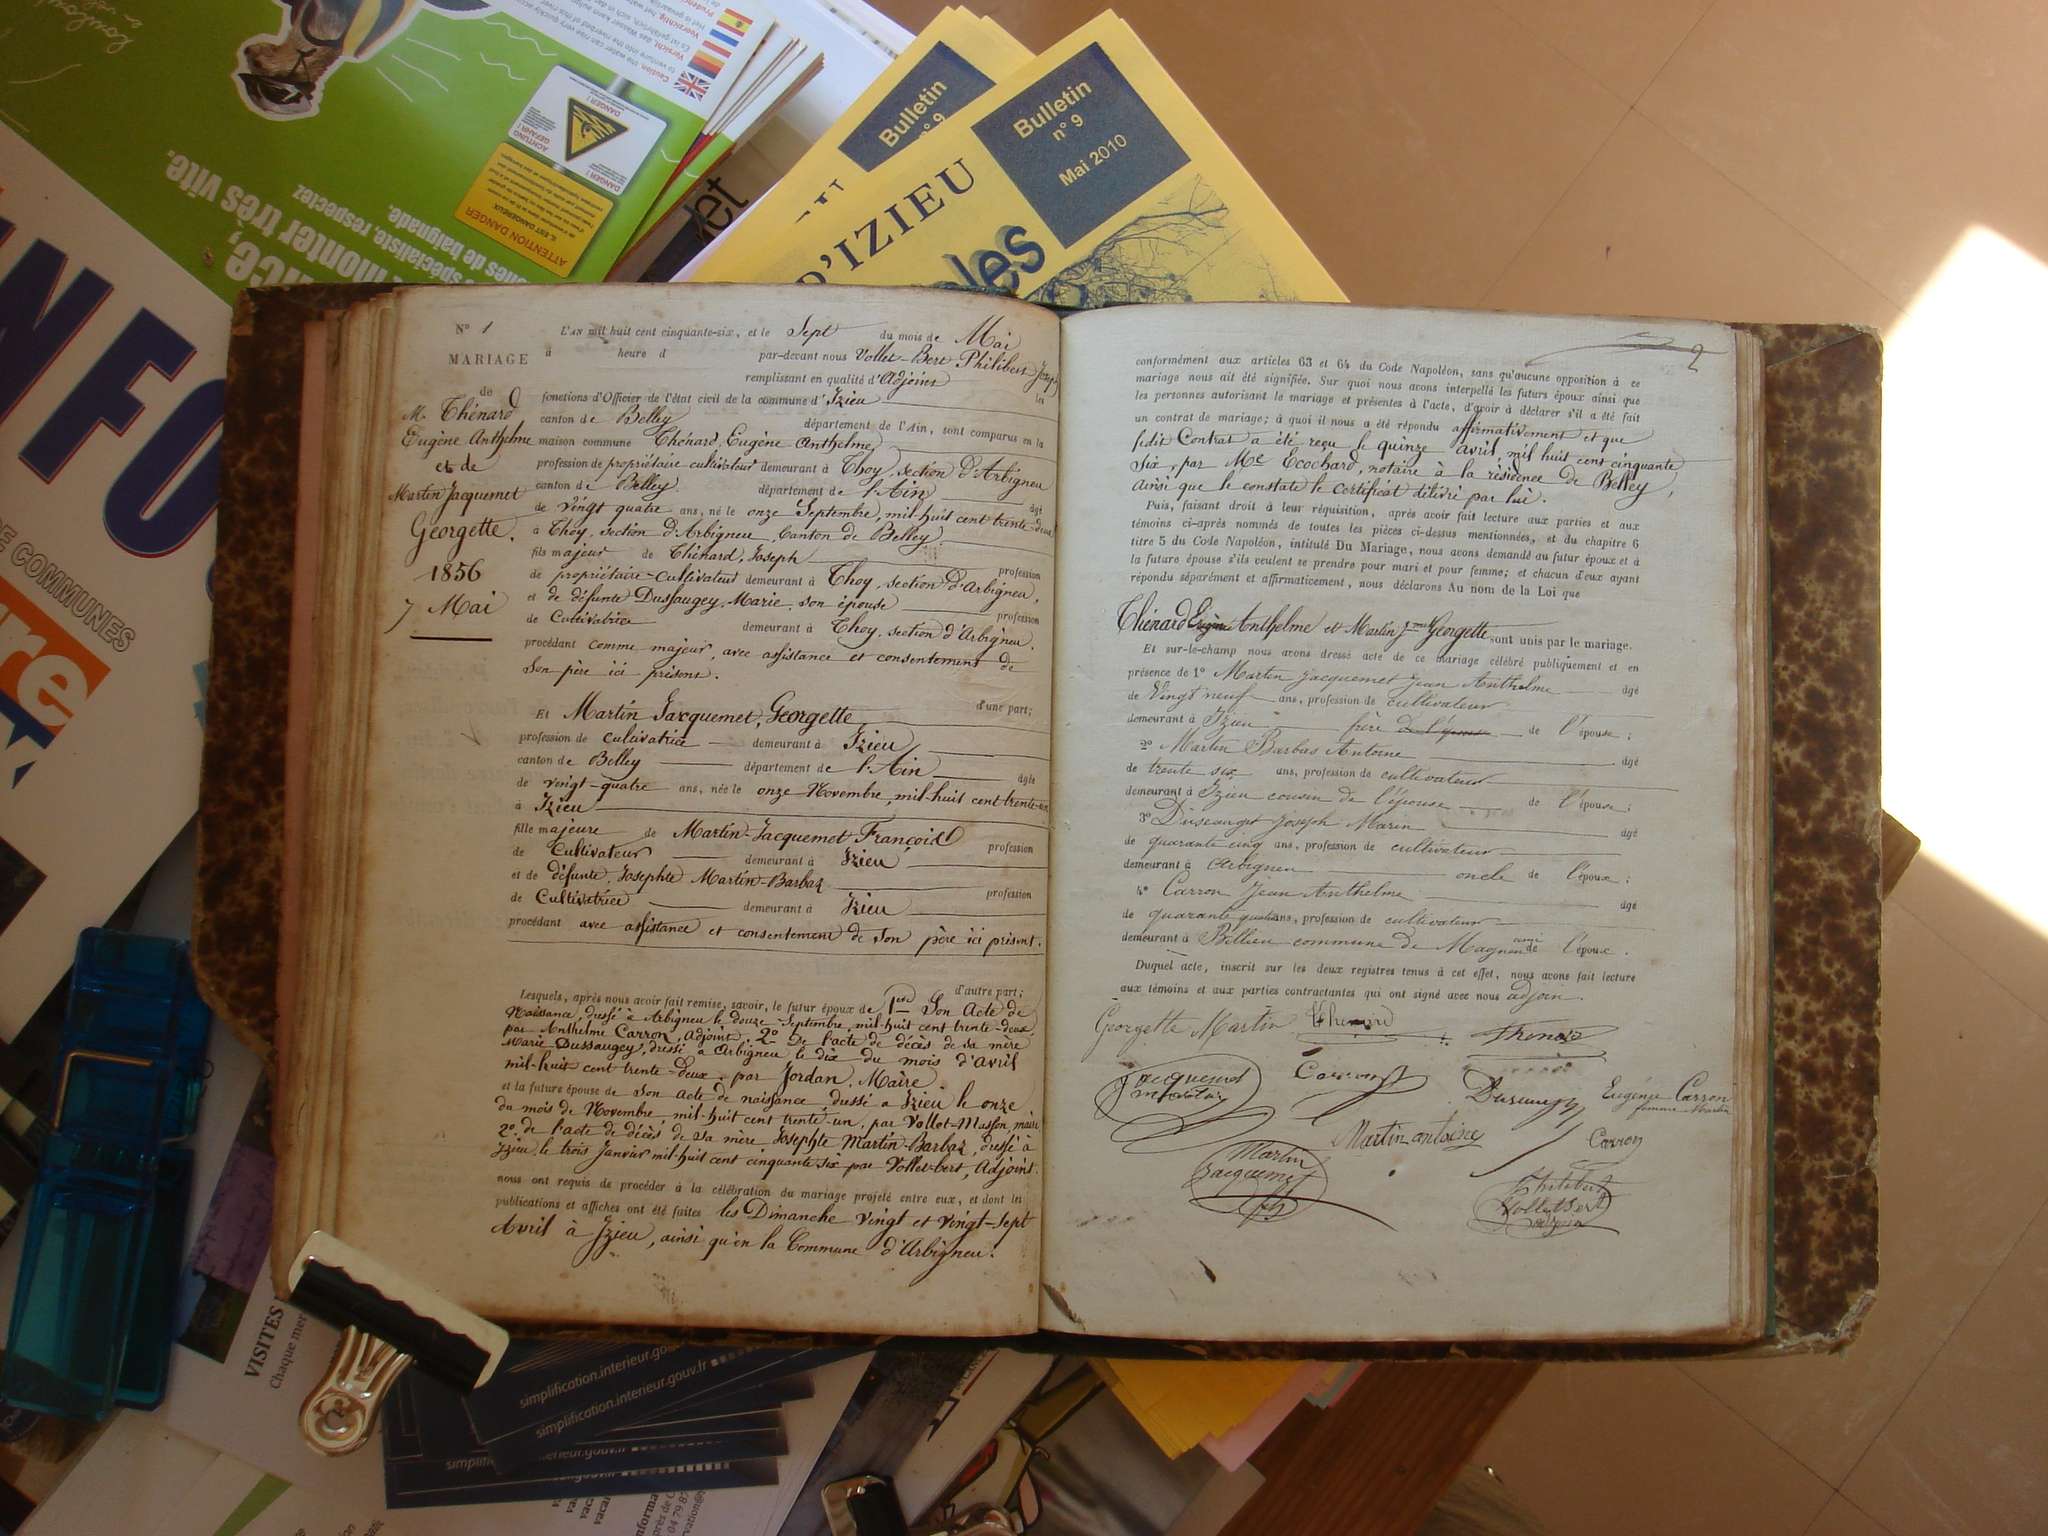 Bulletin
n° 9
Bulletin
n° 9
Mai 2010
D'IZIEU
ATTENTION DANGER
monter très vite.
spécialiste, respectez
de baignade.
INFO
DE COMMUNES
N° 1
MARIAGE
de
M. Thénard
Eugène Anthelme
et de
Martin Jacquemet
Georgette.
1856
7 Mai
L'AN mil huit cent cinquante-six, et le Sept du mois de Mai
à heure d par-devant nous Vollet-Bert Philibert Joseph
remplissant en qualité d'Adjoint les
fonctions d'Officier de l'état civil de la commune d'Izieu
canton de Belley département de l'Ain, sont comparus en la
maison commune Thénard, Eugène Anthelme,
profession de propriétaire cultivateur demeurant à Thoy, section d'Arbigneu
canton de Belley département de l'Ain âgé
de vingt quatre ans, né le onze Septembre, mil-huit cent trente-deux
à Thoy, section d'Arbigneu, Canton de Belley
fils majeur de Thénard, Joseph profession
de propriétaire-cultivateur demeurant à Thoy, section d'Arbigneu,
et de défunte Dussaugey, Marie, son épouse profession
de Cultivatrice demeurant à Thoy, section d'Arbigneu.
procédant comme majeur, avec assistance et consentement de
Son père ici présent.
d'une part;
Et Martin Jacquemet, Georgette
profession de cultivatrice demeurant à Izieu
canton de Belley département de l'Ain âgée
de vingt-quatre ans, née le onze Novembre, mil-huit cent trente-un
à Izieu
fille majeure de Martin-Jacquemet François profession
de Cultivateur demeurant à Izieu
et de défunte, Josephte Martin-Barbaz profession
de Cultivatrice demeurant à Izieu
procédant avec assistance et consentement de Son père ici présent.
d'autre part;
Lesquels, après nous avoir fait remise, savoir, le futur époux de Son Acte de
Naissance, dressé à Arbigneu le douze Septembre, mil-huit cent trente-deux
par Anthelme Carron, Adjoint, 2° De l'acte de décès de sa mère
Marie Dussaugey, dressé à Arbigneu le dix du mois d'avril
mil-huit cent trente-deux, par Jordan, Maire.
et la future épouse de Son acte de naissance dressé à Izieu le onze
du mois de Novembre mil-huit cent trente-un, par Vollet-Masson, maire
2° de l'acte de décès de sa mère Josephte Martin-Barbaz, dressé à
Izieu, le trois Janvier mil-huit cent cinquante six par Vollet-bert, Adjoint.
nous ont requis de procéder à la célébration du mariage projeté entre eux, et dont les
publications et affiches ont été faites les Dimanche vingt et vingt-sept
Avril à Izieu, ainsi qu'en la Commune d'Arbigneu.
2
conformément aux articles 63 et 64 du Code Napoléon, sans qu'aucune opposition à ce
mariage nous ait été signifiée. Sur quoi nous avons interpellé les futurs époux ainsi que
les personnes autorisant le mariage et présentes à l'acte, d'avoir à déclarer s'il a été fait
un contrat de mariage; à quoi il nous a été répondu affirmativement et que
ledit Contrat a été reçu le quinze avril, mil huit cent cinquante
Six, par Me Ecochard, notaire à la résidence de Belley,
ainsi que le constate le certificat délivré par lui.
Puis, faisant droit à leur réquisition, après avoir fait lecture aux parties et aux
témoins ci-après nommés de toutes les pièces ci-dessus mentionnées, et du chapitre 6
titre 5 du Code Napoléon, intitulé Du Mariage, nous avons demandé au futur époux et à
la future épouse s'ils veulent se prendre pour mari et pour femme; et chacun d'eux ayant
répondu séparément et affirmativement, nous déclarons Au nom de la Loi que
Thénard Eugène Anthelme et Martin Jmet Georgette sont unis par le mariage.
Et sur-le-champ nous avons dressé acte de ce mariage célébré publiquement et en
présence de 1° Martin Jacquemet Jean Anthelme âgé
de Vingt neuf ans, profession de cultivateur
demeurant à Izieu frère de l'épouse de l'épouse;
2° Martin Barbas Antoine âgé
de trente six ans, profession de cultivateur
demeurant à Izieu cousin de l'épouse de l'épouse;
3° Joseph Marin âgé
de quarante cinq ans, profession de cultivateur
demeurant à Arbigneu oncle de l'époux;
4° Carron Jean Anthelme âgé
de quarante quatre ans, profession de cultivateur
demeurant à Billieu commune de Magnieu de l'époux.
Duquel acte, inscrit sur les deux registres tenus à cet effet, nous avons fait lecture
aux témoins et aux parties contractantes qui ont signé avec nous adjoin.
Georgette Martin Thenard Thenard
Jacquemet Carron Eugénie Carron
femme Martin
Martin antoine Carron
Martin
Jacquemet
Philibert
Vollet Bert
VISITES
Chaque mer
simplification.interieur.gouv.fr
simplification.interieur.gouv.fr